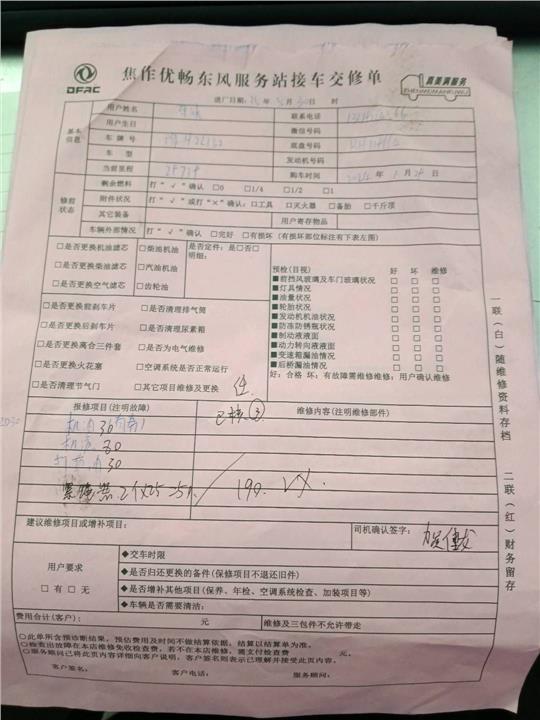 DFAC
焦作优畅东风服务站接车交修单
真美满服务
ZHENMEIMANFUWU
送厂日期: 年 月 30日 时
基本信息
用户姓名 联系电话
用户生日 微信号码
车牌号 底盘号码
车型 发动机号码
当前里程 购车时间 2024年 月 日
修前状态
剩余燃料 打“√”确认 □0 □1/4 □1/2 □1
附件状况 打“√”或打“×”确认:□工具 □灭火器 □备胎 □千斤顶
其它装备 用户寄存物品
车辆外部情况 打“√”确认 □完好 □有损坏(有损坏部位标注有下表左图)
□是否更换机油滤芯 □柴油机油
□是否更换柴油滤芯 □汽油机油
□是否更换空气滤芯 □齿轮油
是否定件:是□否□
明细:
□是否更换前刹车片 □是否清理排气筒
□是否更换后刹车片 □是否清理尿素箱
□是否更换离合三件套 □是否为电气维修
□是否更换火花塞 □空调系统是否正常运行
□是否清理节气门 □其它项目维修及更换
预检(目视) 好 坏 维修
■前挡风玻璃及车门玻璃状况 □ □ □
■灯具情况 □ □ □
■油量状况 □ □ □
■轮胎状况 □ □ □
■发动机机油状况 □ □ □
■防冻防锈瓶状况 □ □ □
■制动液液面 □ □ □
■动力转向液液面 □ □ □
■变速箱漏油情况 □ □ □
■后桥漏油情况 □ □ □
好:合格 坏:有故障需维修维修:用户确认维修
报修项目(注明故障) 维修内容(注明维修部件)
机油 30
机滤 30
30
2个×25
190.
建议维修项目或增补项目: 司机确认签字:
用户要求
□有 □无
◆交车时限
◆是否归还更换的备件(保修项目不退还旧件)
◆是否增补其他项目(保养、年检、空调系统检查、加装项目等)
◆车辆是否需要清洁:
费用合计(客户): 元 维修及三包件不允许带走
○此单所含预诊断结果,预估费用及时间不做结算依据,结算以结算单为准。
○检查出故障在本店维修免收检查费,若不在本店维修,需支付检查费 元。
○服务顾问已将此页内容详细向客户说明,客户签名则表示已理解并接受此页内容。
客户签名: 客户电话: 服务顾问:
一联(白)随维修资料存档
二联(红)财务留存